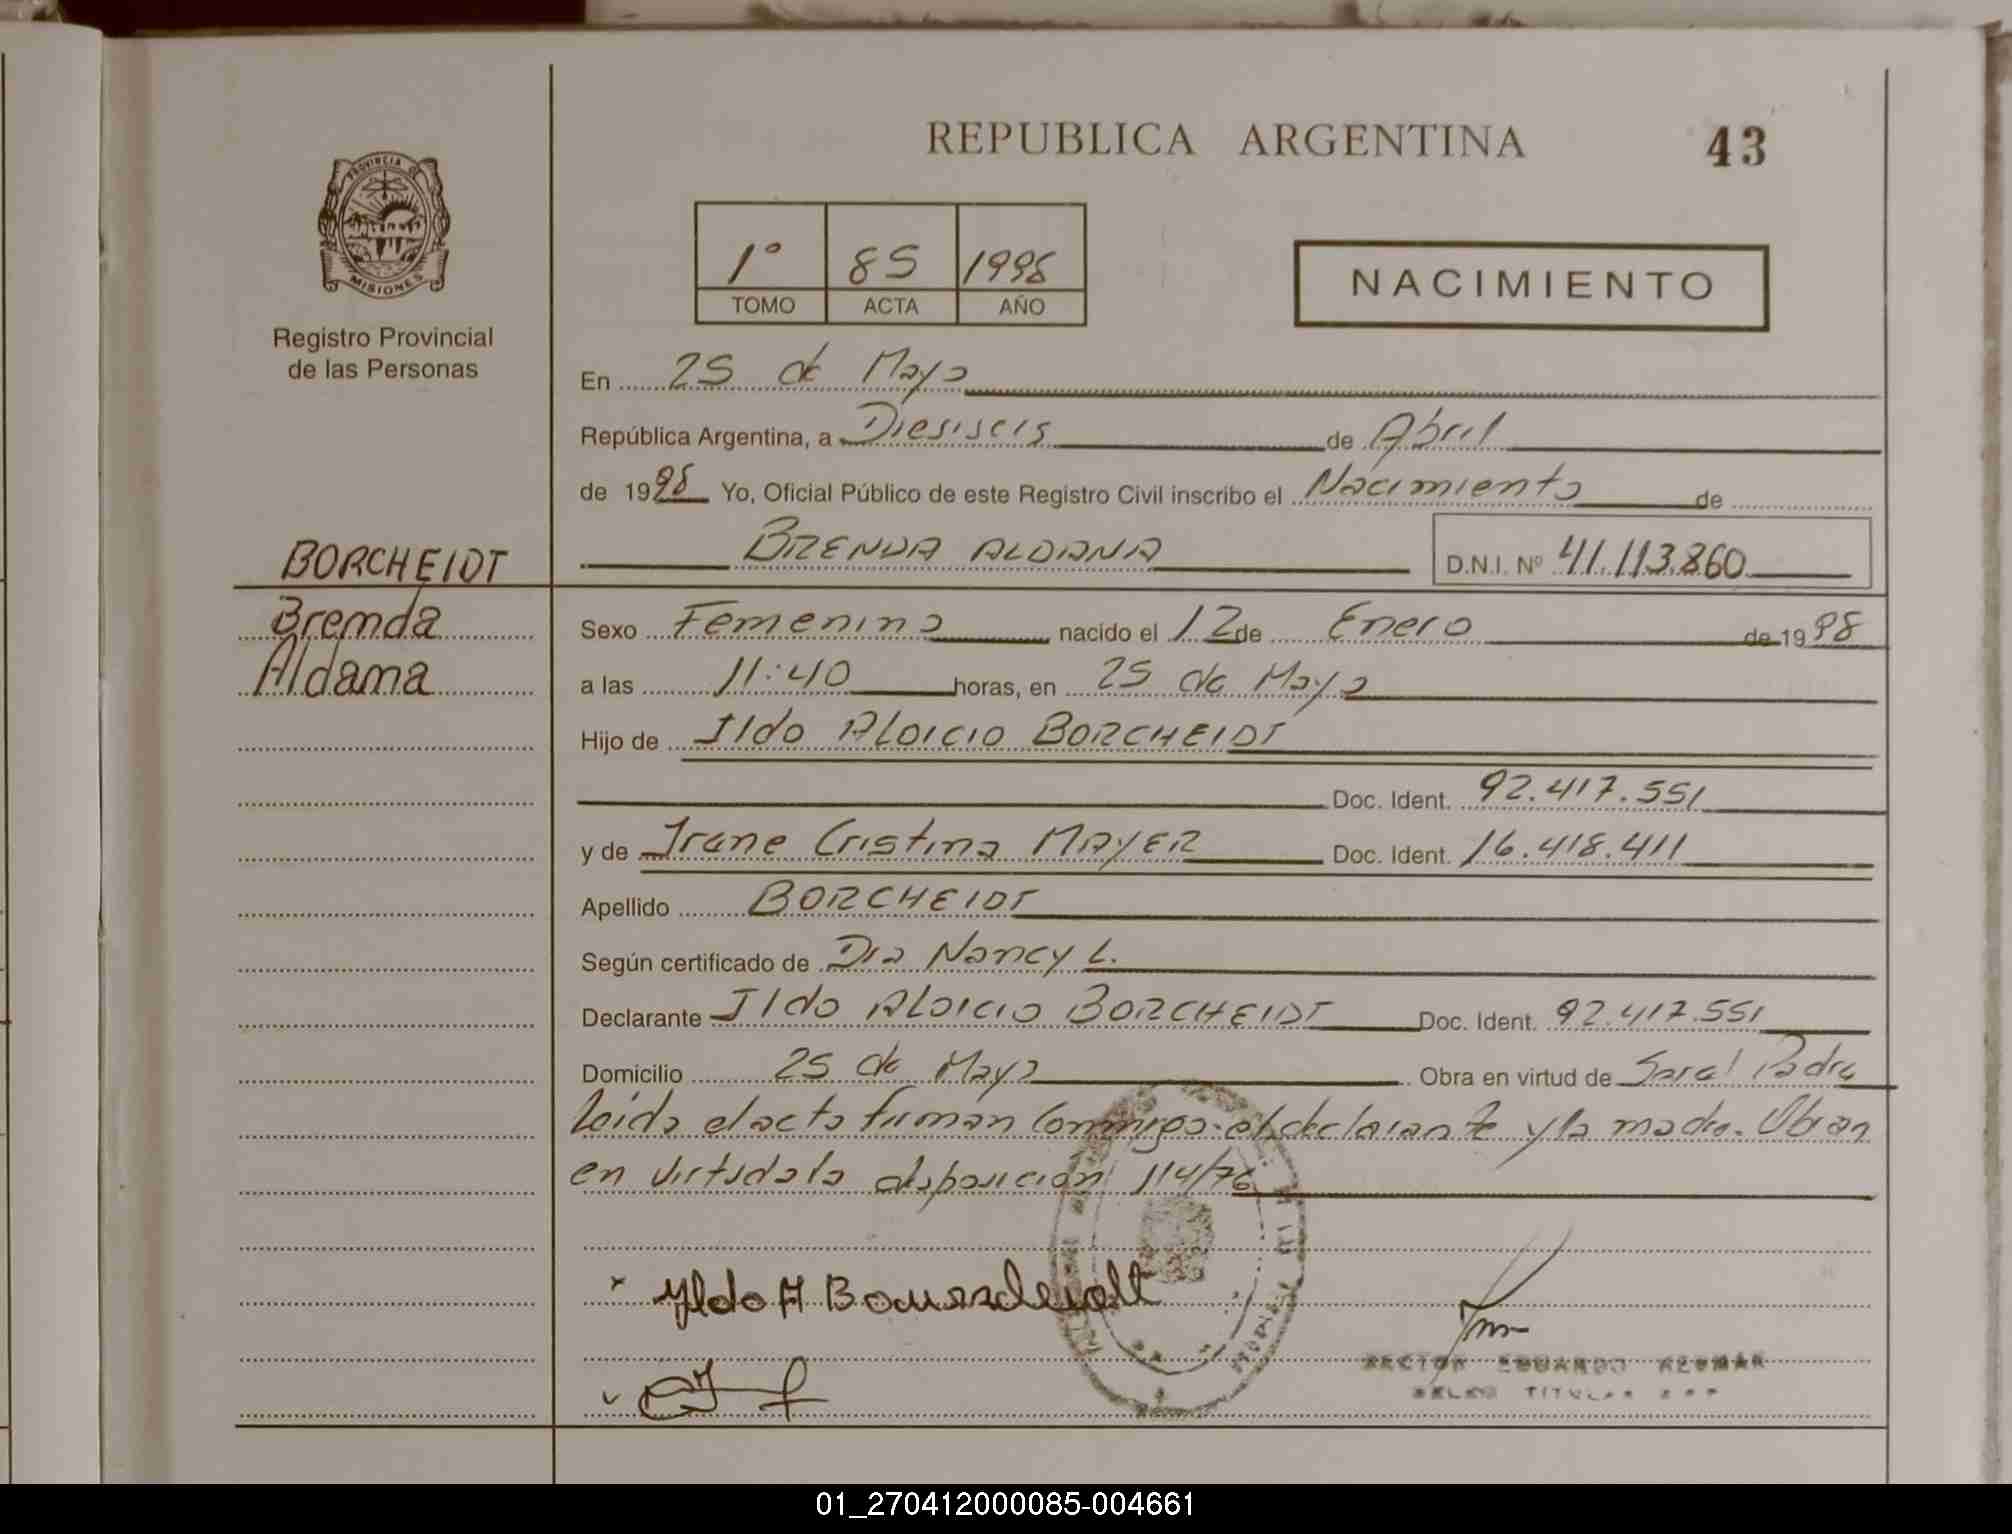 REPUBLICA ARGENTINA
43
PROVINCIA DE
MISIONES
Registro Provincial
de las Personas
1° 85 1998
TOMO ACTA AÑO
NACIMIENTO
En 25 de Mayo
República Argentina, a Diesiseis de Abril
de 1998 Yo, Oficial Público de este Registro Civil inscribo el Nacimiento de
BRENDA ALDANA D.N.I. Nº 41.113.860
BORCHEIDT
Brenda
Aldana
Sexo Femenino nacido el 12 de Enero de 1998
a las 11:40 horas, en 25 de Mayo
Hijo de Ildo ALOICIO BORCHEIDT
Doc. Ident. 92.417.551
y de Irane Cristina MAYER Doc. Ident. 16.418.411
Apellido BORCHEIDT
Según certificado de Dra Nancy L.
Declarante Ildo ALOICIO BORCHEIDT Doc. Ident. 92.417.551
Domicilio 25 de Mayo Obra en virtud de Ser el Padre
Leida el acta firman Conmigo el declarante y la madre. Obran
en virtud a la disposición 114/76
Ildo A
EDUARDO
TITULAR
01_270412000085-004661